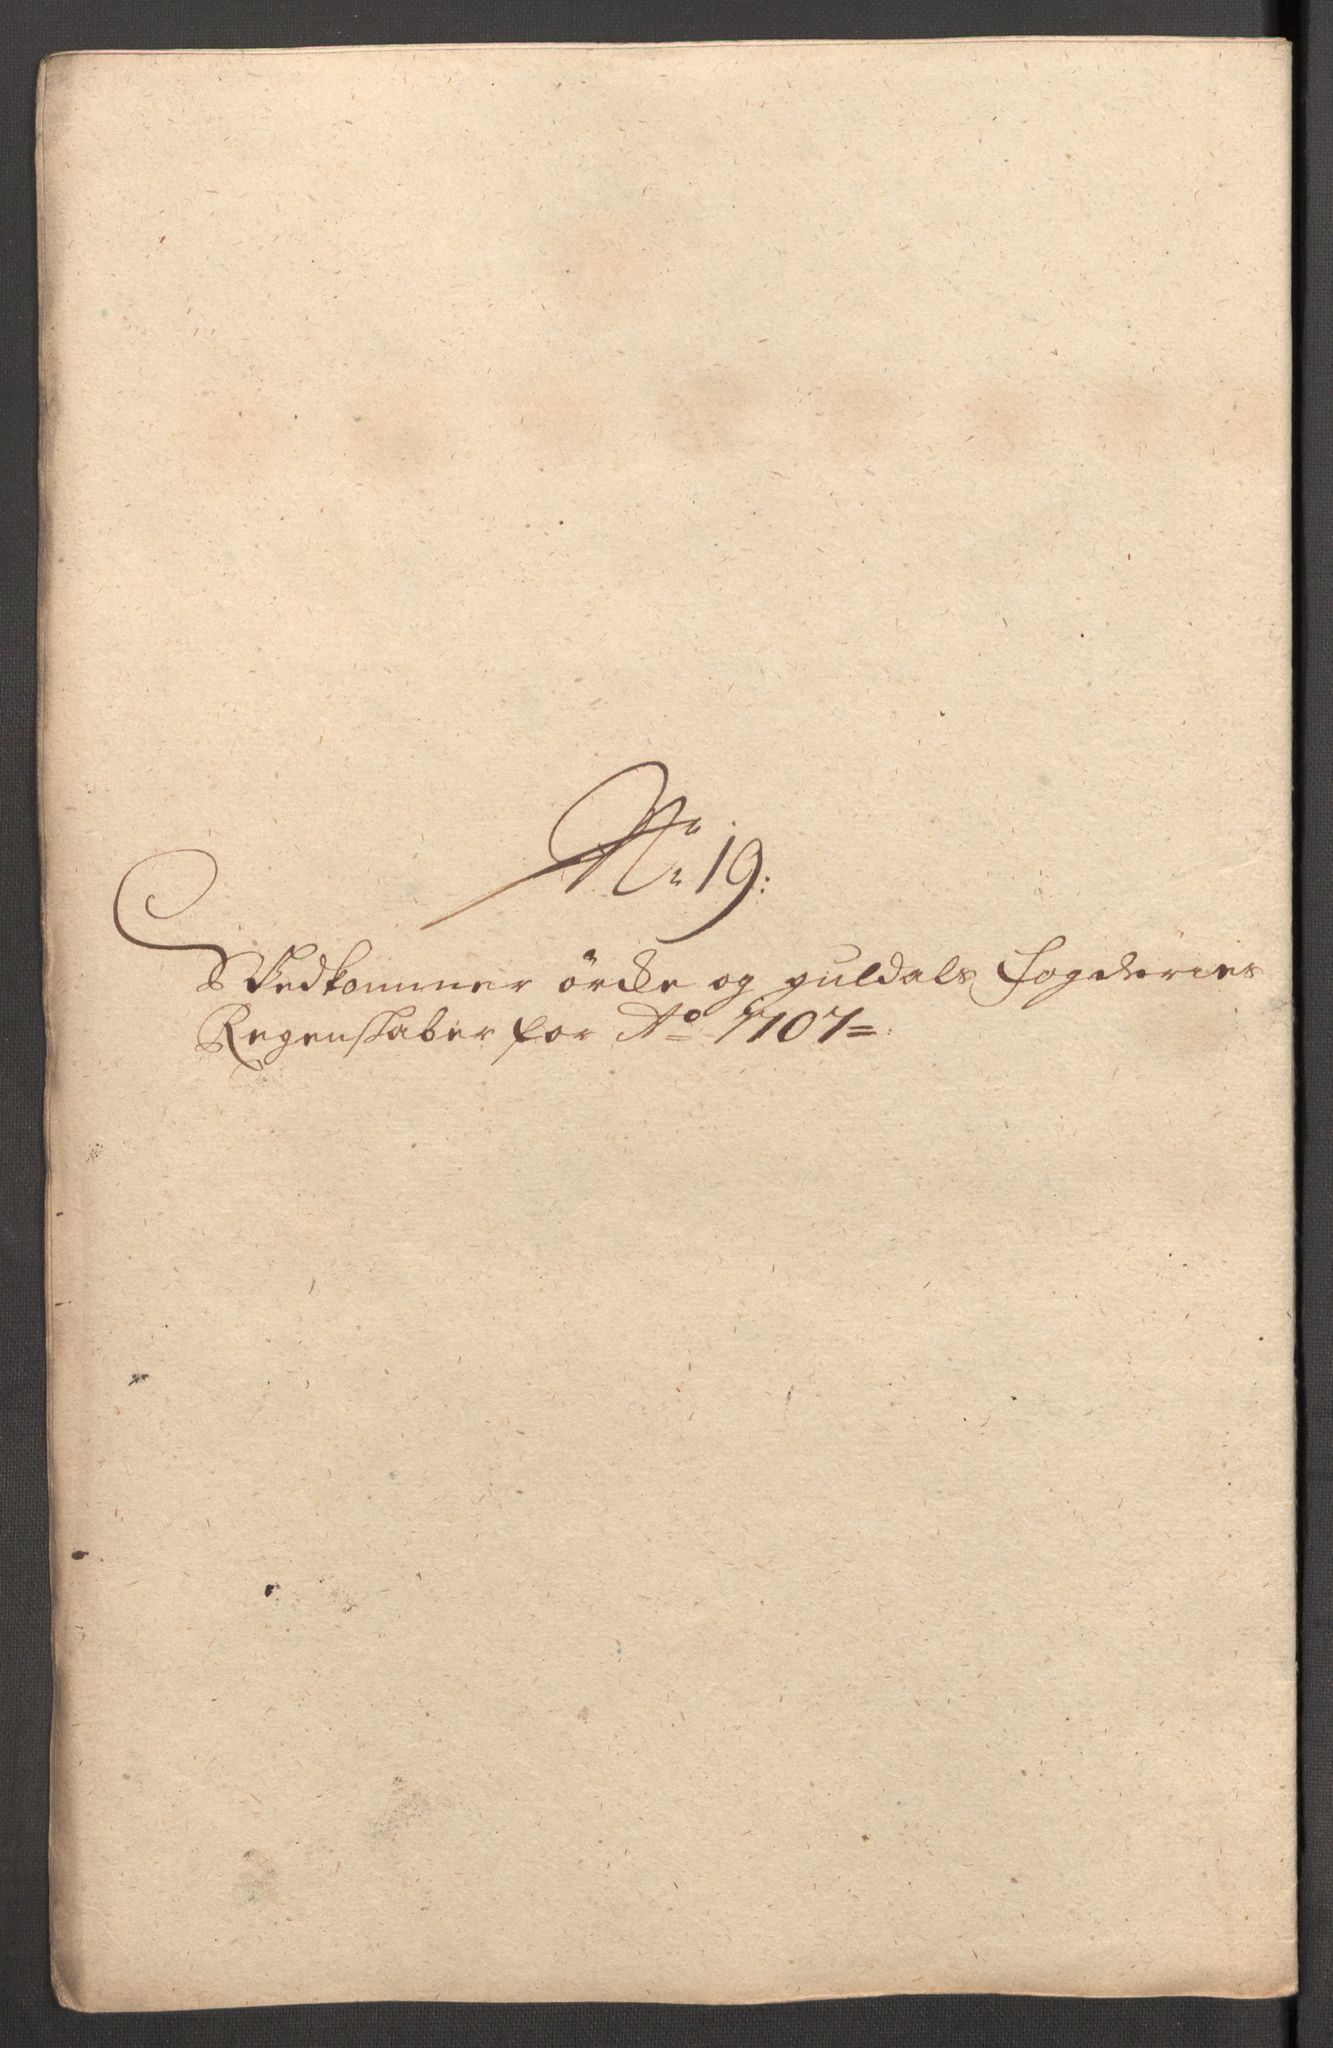 No 19:
Vedkommer örcke og guldals fogderies
Regenskaber for Ao 1707=